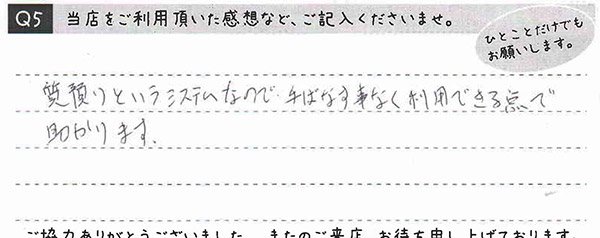 Q5 当店をご利用頂いた感想など、ご記入くださいませ。
ひとことだけでも
お願いします。
質預りというシステムなので、手ばなす事なく利用できる点で
助かります。
ご協力ありがとうございました。またのご来店、お待ち申し上げております。